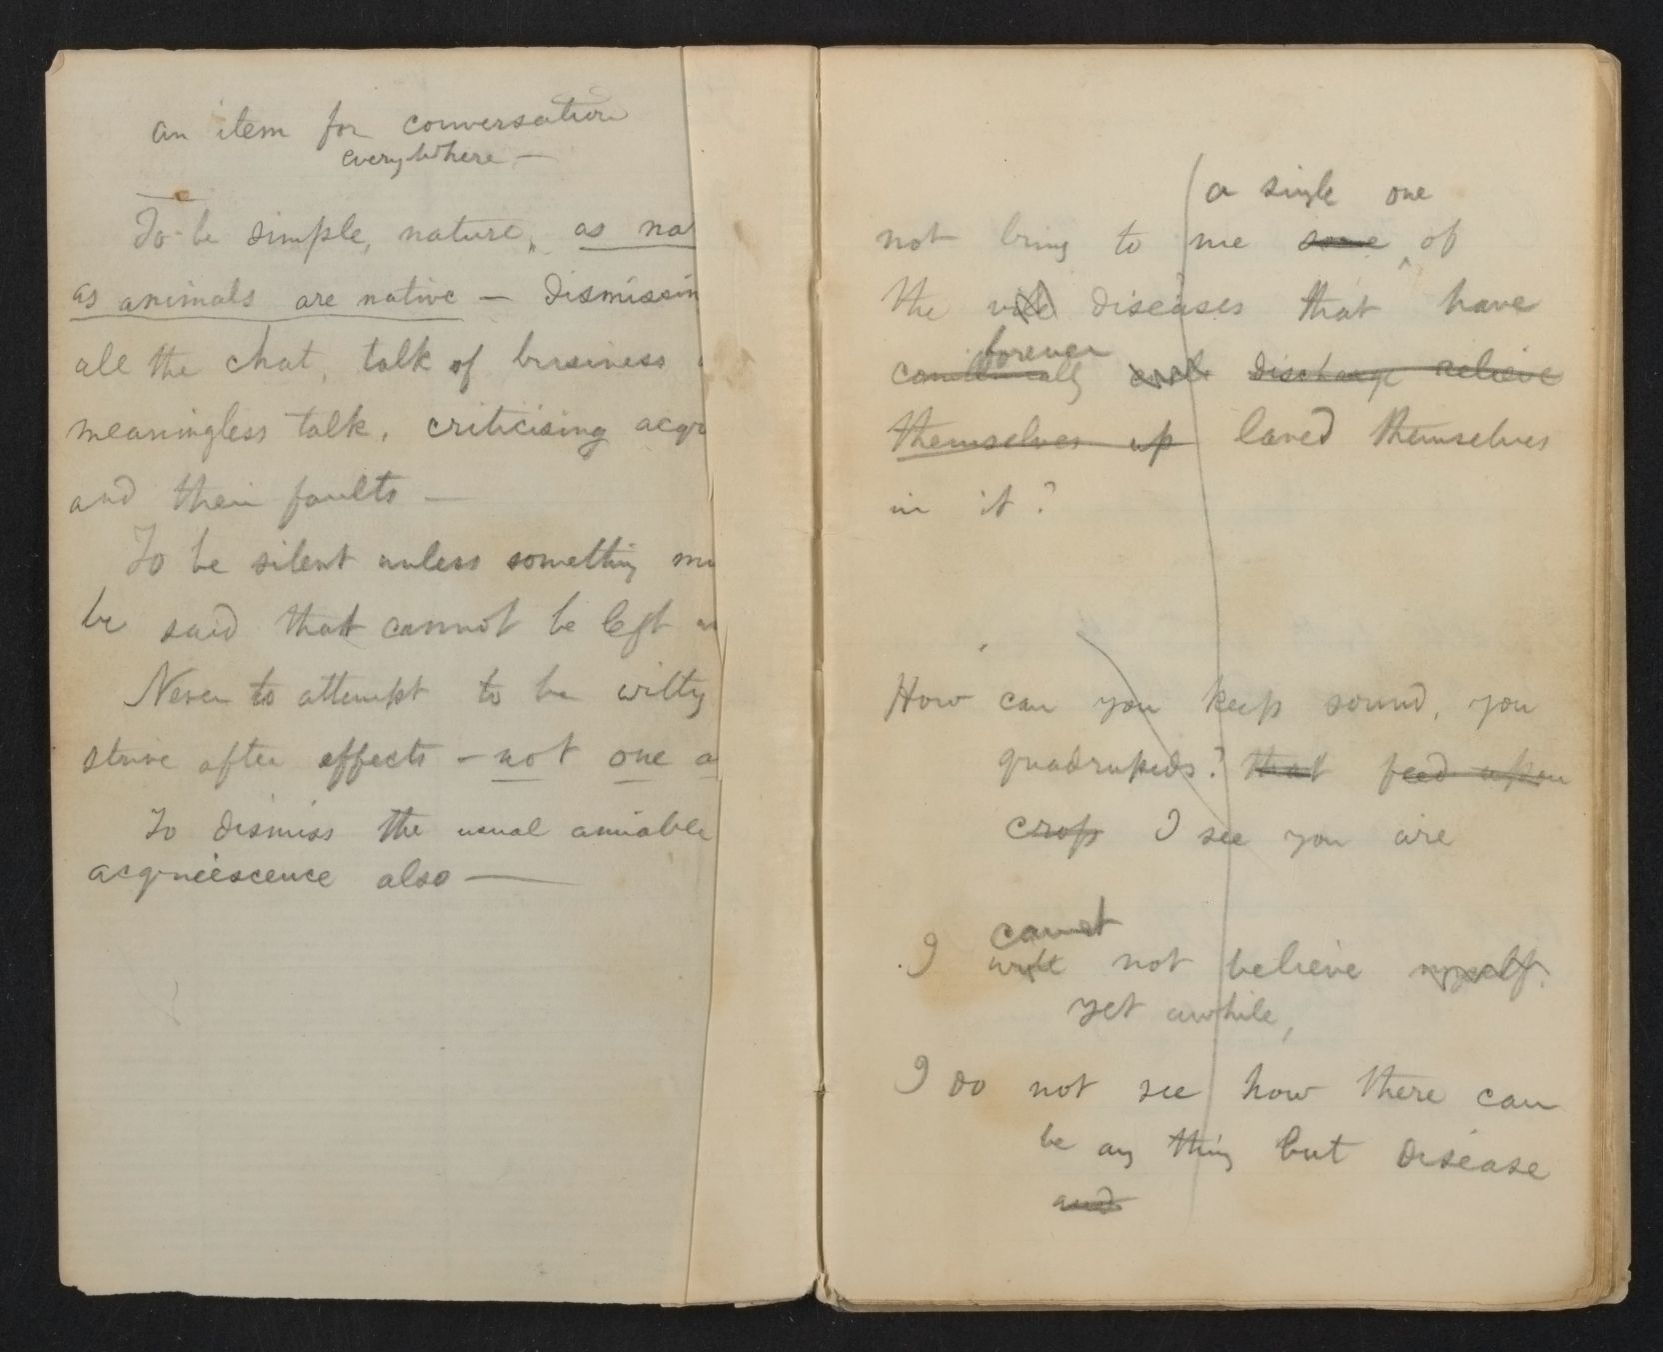 an item for conversation
everywhere —
To be simple, nature, as na
as animals are native — dismissin
all the chat, talk of business
meaningless talk, criticising acqu
and their faults —
To be silent unless something mu
be said that cannot be left
Never to attempt to be witty
strive after effects — not one a
To dismiss the usual amiable
acquiescence also —
a single one
not bring to me some of
the vile diseases that have
forever
continually discharge relieve
themselves up laved themselves
in it?
How can you keep sound, you
quadrupeds? that feed upon
crops I see you are
cannot
I will not believe myself.
yet awhile,
I do not see how there can
be any thing but disease
and